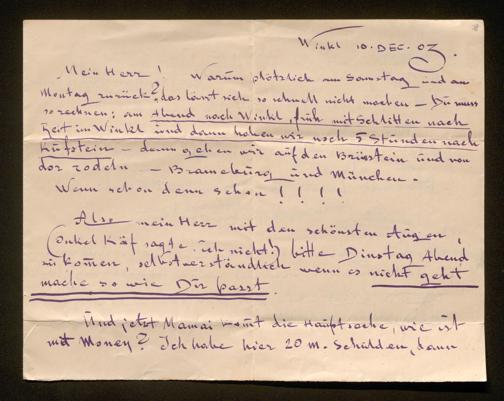 Winkl 10. DEC. 03.
Mein Herr! Warum plötzlich am Samstag und am
Montag zurück? das lässt sich so schnell nicht machen – Du muss
so rechnen: am Abend nach Winkl, früh mit Schlitten nach
Zeit im Winkl und dann haben wir noch 5 Stunden nach
Kufstein – dann gehen wir auf den Brünstein und von
dor rodeln – Branenburg und München.
Wenn schon denn schon!!!!
Also mein Herr mit den schönsten Augen,
(Onkel Käf sagte, ich nicht!) bitte Dinstag Abend
zu komen, selbstverständlich wenn es nicht geht
mache so wie Dir passt.
Und jetzt Mamai komt die Hauptsache, wie ist
mit Money? Ich habe hier 20 M. Schulden, dann